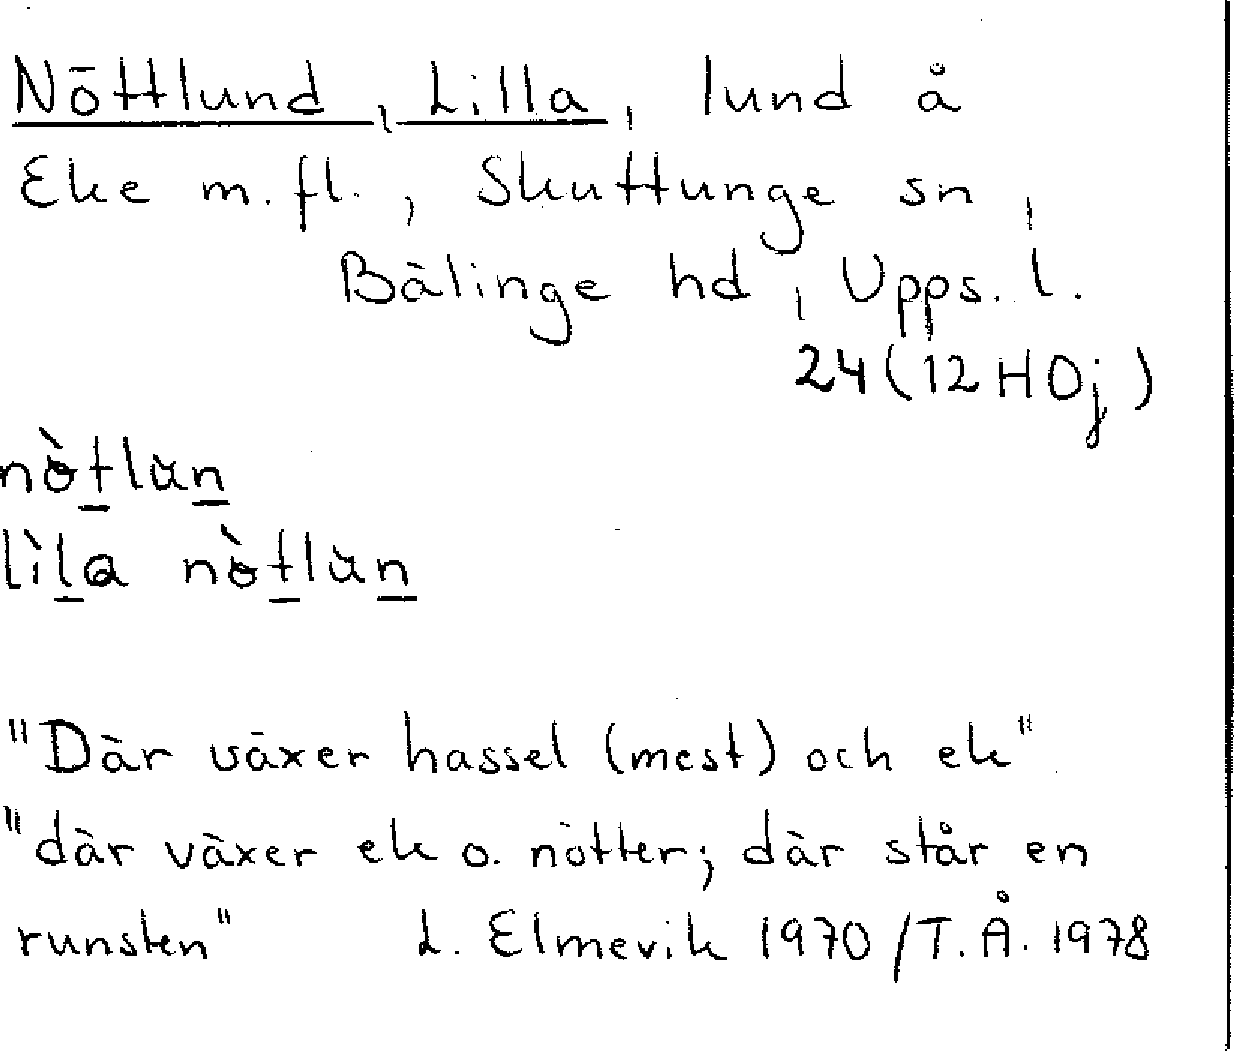 Nöttlund, Lilla, lund å
Eke m.fl., Skuttunge sn,
Bälinge hd, Upps. l.
24 (12 H Oj)
nò̵tlu̇n
lìla nò̵tlu̇n
"Där växer hassel (mest) och ek"
"där växer ek o. nötter; där står en
runsten" L. Elmevik 1970/T.Å. 1978